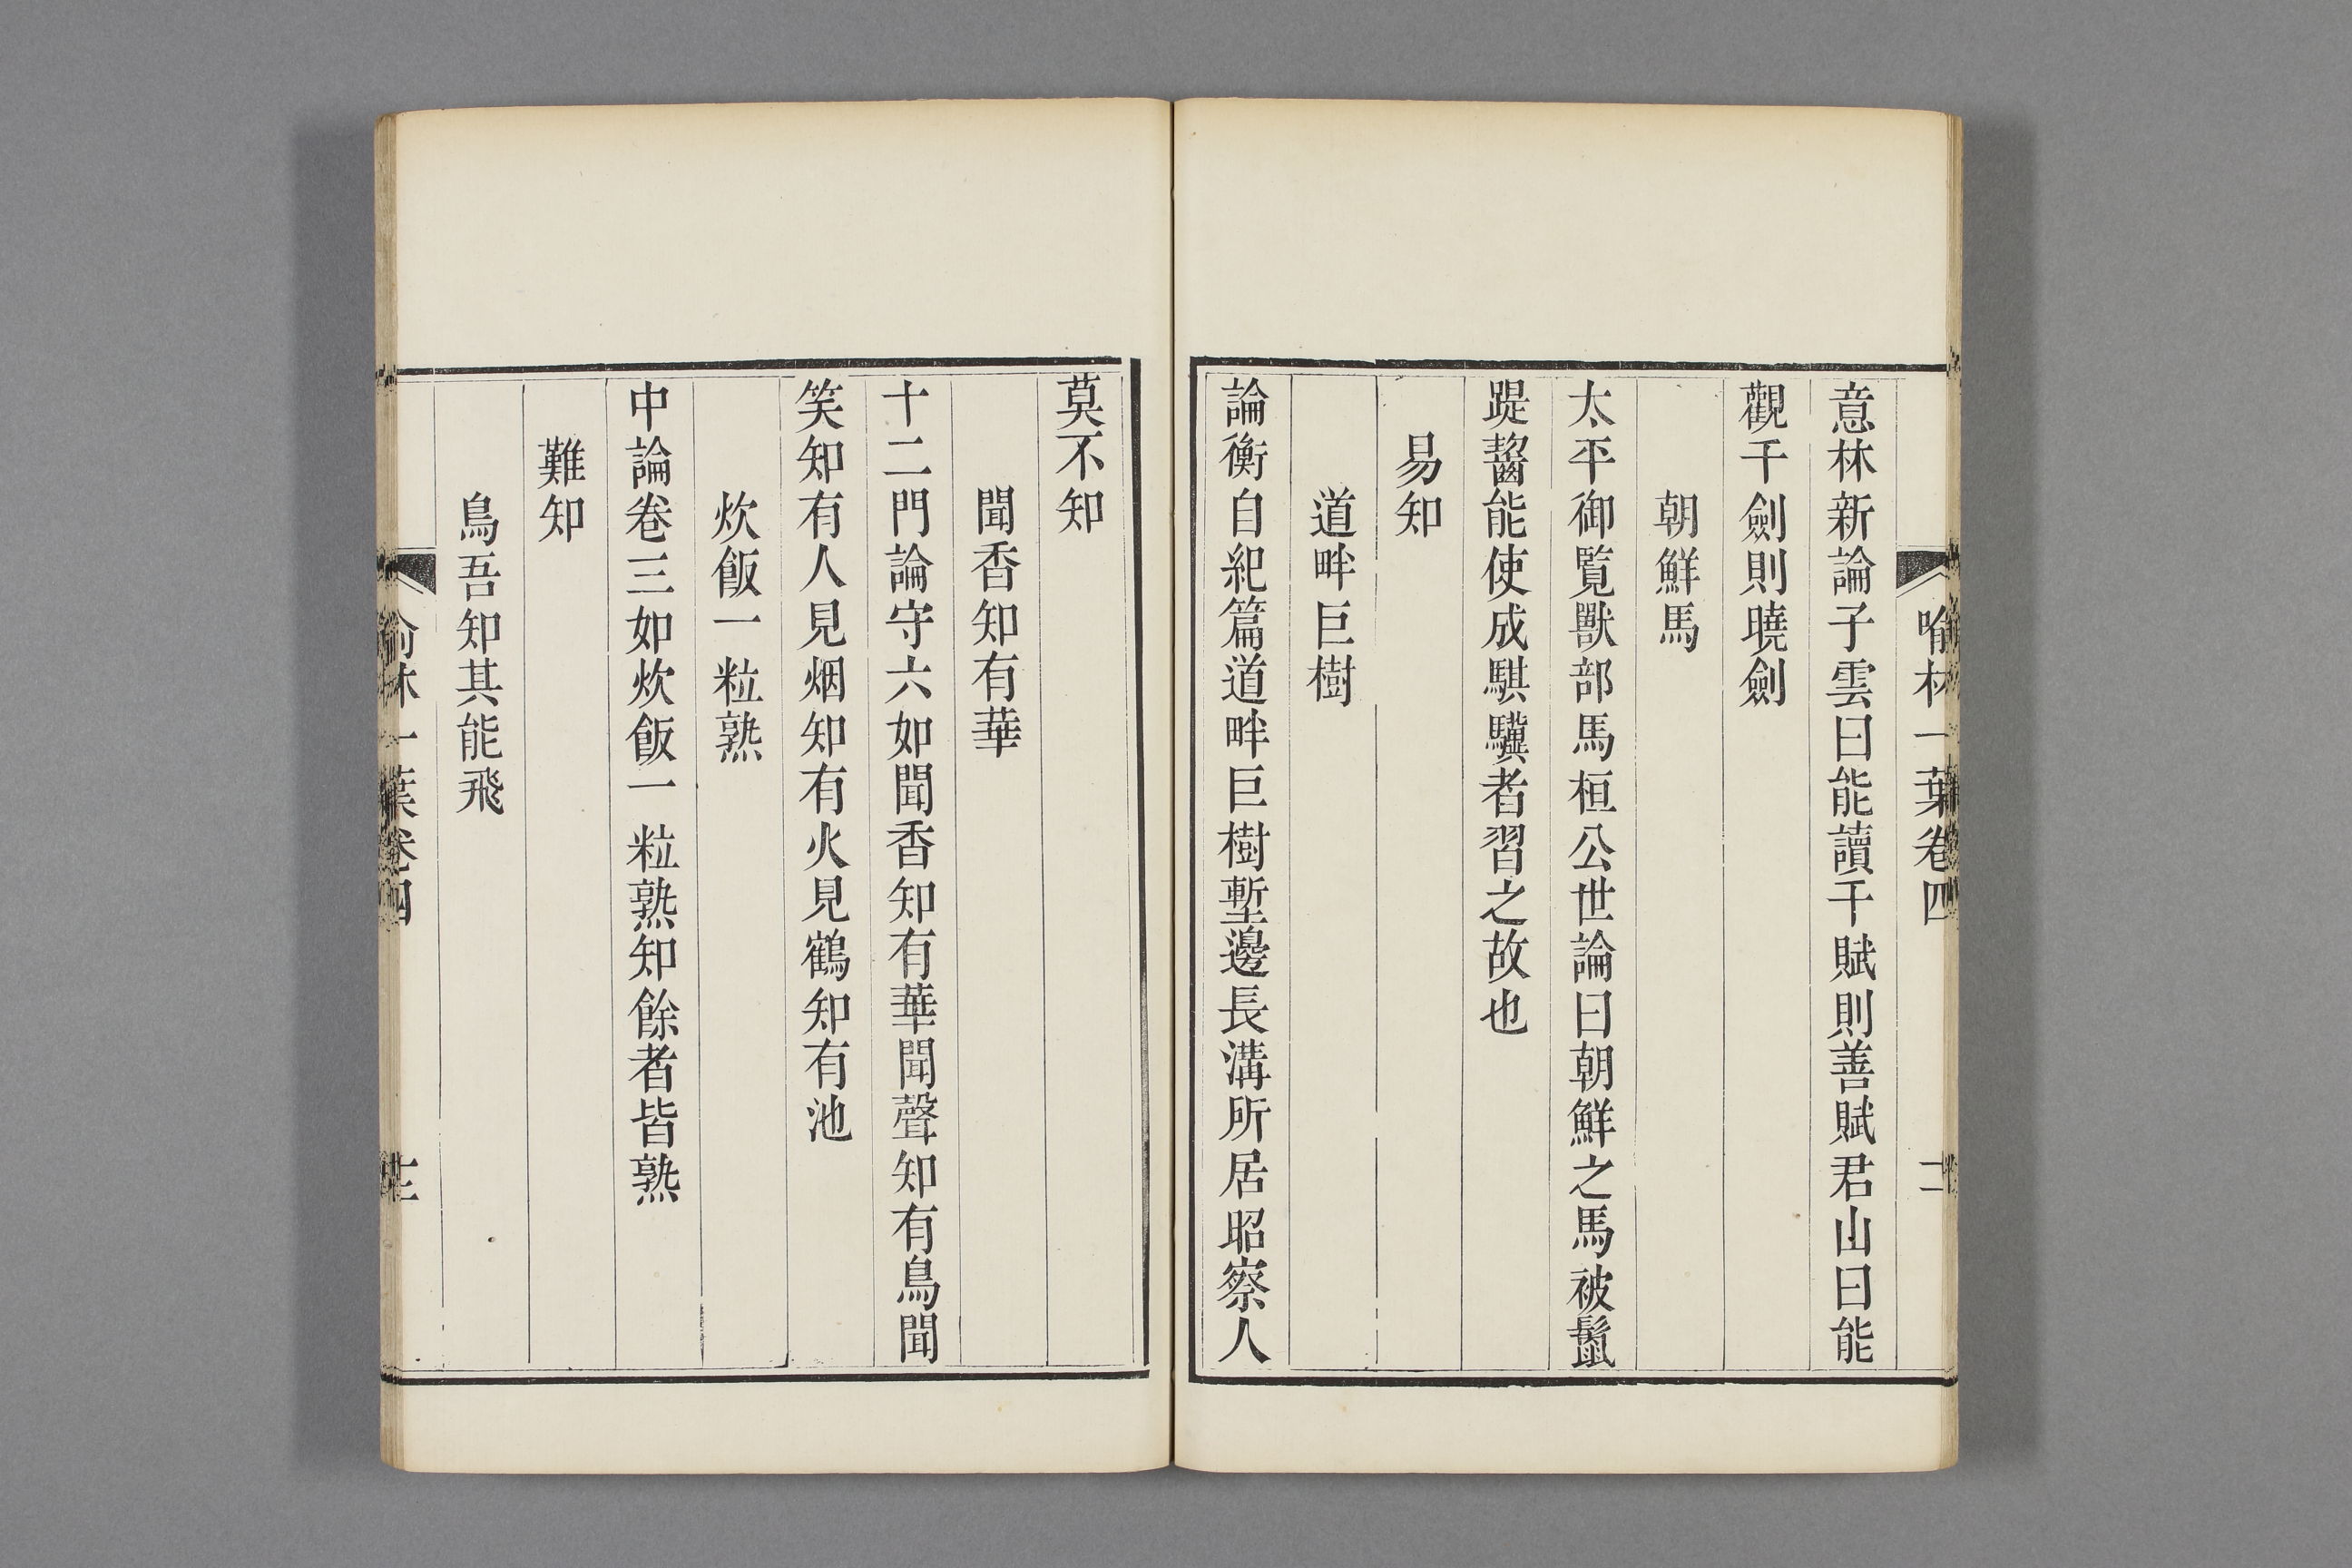 喻林一葉卷四
意林新論子雲曰能讀千賦則善賦君山曰能
觀千劍則曉劍
朝鮮馬
太平御覧獸部馬桓公世論曰朝鮮之馬被鬛
踶齧能使成騏驥者習之故也
易知
道畔巨樹
論衡自紀篇道畔巨樹塹邊長溝所居昭察人
莫不知
聞香知有華
十二門論守六如聞香知有華聞聲知有鳥聞
笑知有人見烟知有火見鶴知有池
炊飯一粒熟
中論卷三如炊飯一粒熟知餘者皆熟
難知
鳥吾知其能飛
喻林一葉卷四